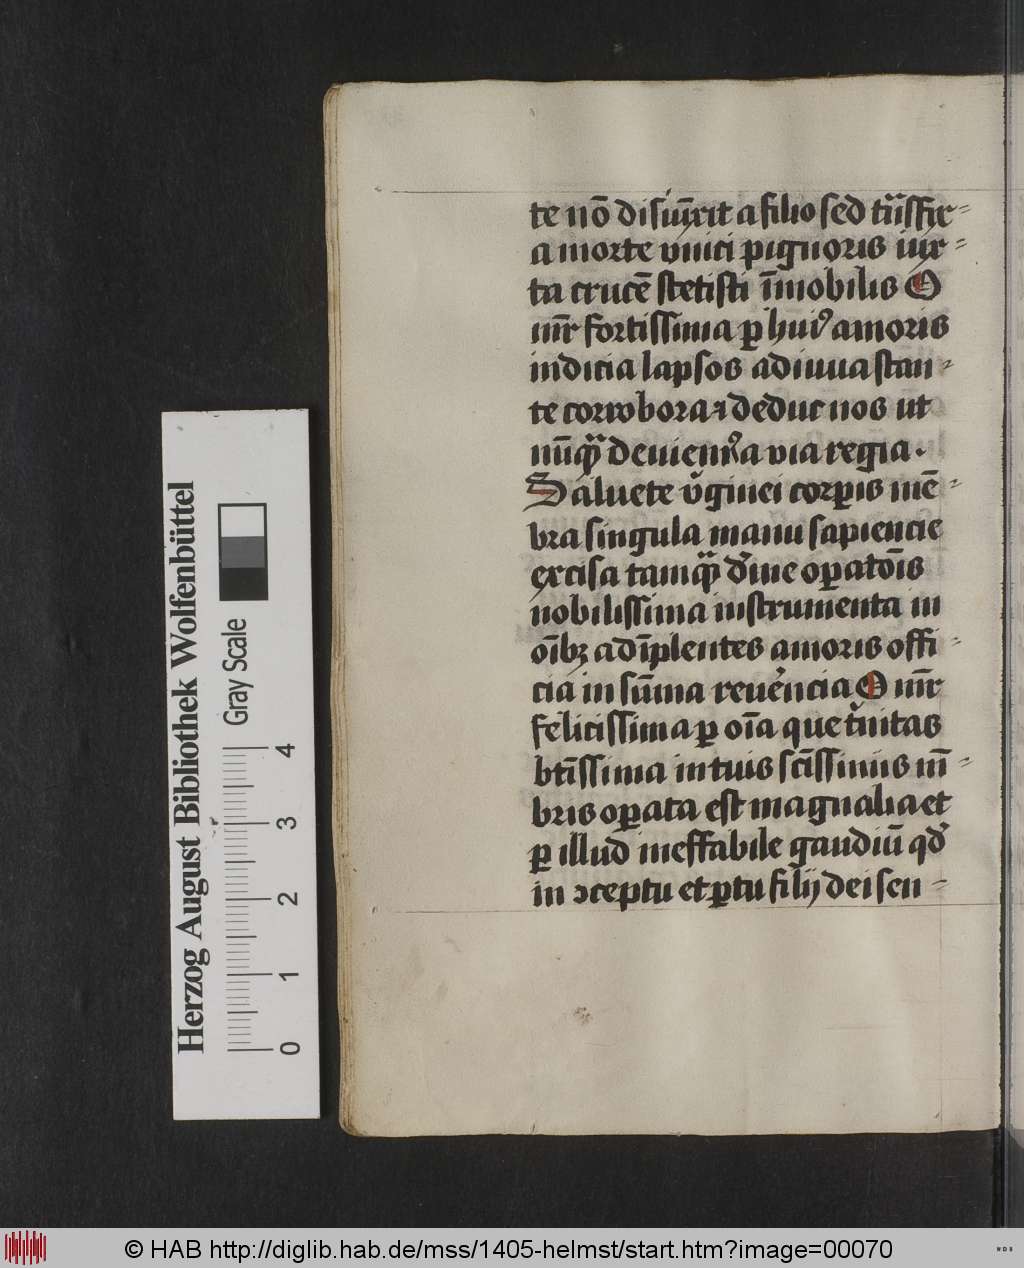 te nō disiūxit a filio sed trāsfix=
a morte vnici pignoris iux=
ta crucē stetisti īmobilis O
mr̄ fortissima ꝑ huiꝰ amoris
indicia lapsos adiuua stan=
te corrobora ⁊ deduc nos ut
nūqͣ deuiemꝰ a via regia.
Saluete v̓ginei corꝑis mē=
bra singula manu sapiencie
excisa tamqͣ diuīe oꝑatōīs
nobilissima instrumenta in
oībꝫ adīplentes amoris offi=
cia in sūma reuerēncia O mr̄
felicissima ꝑ oīa que t̓nitas
btīssima in tuis sctīssimis mē=
bris oꝑata est magnalia et
ꝑ illud ineffabile gaudiū qd̓
in ꝯceptu et ꝑtu filij dei sen=
Herzog August Bibliothek Wolfenbüttel
Gray Scale
0 1 2 3 4
© HAB http://diglib.hab.de/mss/1405-helmst/start.htm?image=00070